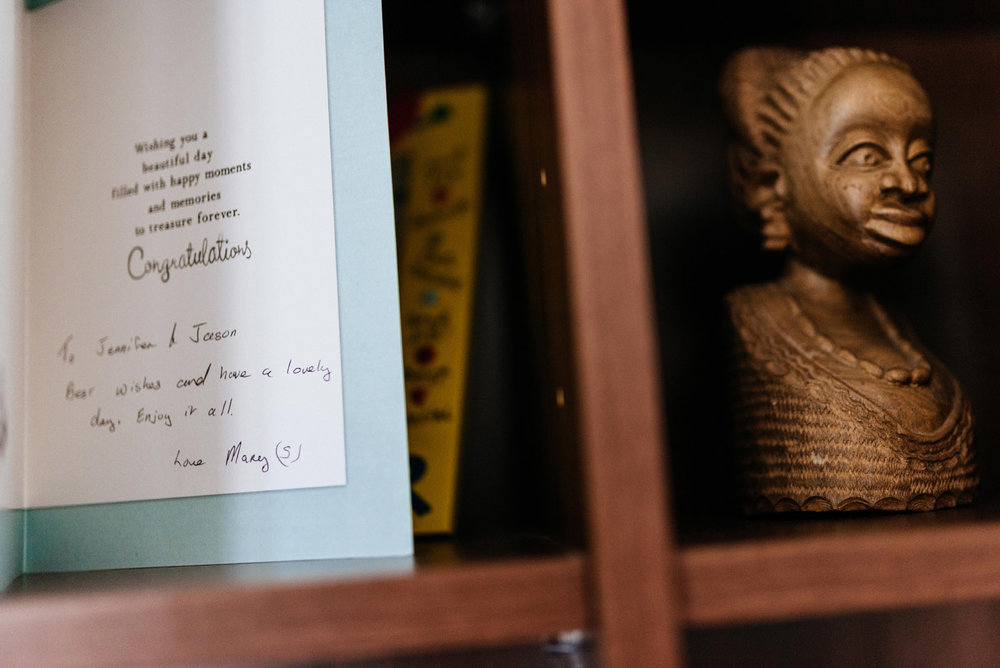 Wishing you a
beautiful day
filled with happy moments
and memories
to treasure forever.
Congratulations
To Jennifer & Jason
Best wishes and have a lovely
day, Enjoy it all.
Love Mary (S)